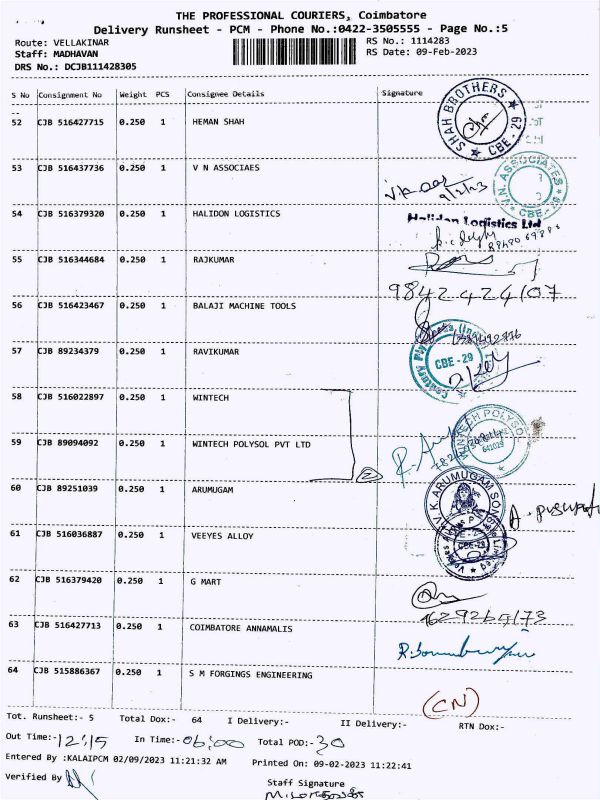 THE PROFESSIONAL COURIERS, Coimbatore
Delivery Runsheet - PCM - Phone No.:0422-3505555 - Page No.:5
Route: VELLAKINAR
RS No.: 1114283
Staff: MADHAVAN
RS Date: 09-Feb-2023
DRS No.: DCJB111428305
S No Consignment No Weight PCS Consignee Details Signature
52 CJB 516427715 0.250 1 HEMAN SHAH
SHAH BROTHERS CBE - 29
53 CJB 516437736 0.250 1 V N ASSOCIAES
9/2/23
V.N. ASSOCIATES CBE-29
54 CJB 516379320 0.250 1 HALIDON LOGISTICS
Halidon Logistics Ltd
55 CJB 516344684 0.250 1 RAJKUMAR
9842424107
56 CJB 516423467 0.250 1 BALAJI MACHINE TOOLS
57 CJB 89234379 0.250 1 RAVIKUMAR
CBE - 29
58 CJB 516022897 0.250 1 WINTECH
59 CJB 89094092 0.250 1 WINTECH POLYSOL PVT LTD
WINTECH POLYSOL
2
60 CJB 89251039 0.250 1 ARUMUGAM
V.K. ARUMUGAM SON
61 CJB 516036887 0.250 1 VEEYES ALLOY
CBE-29
62 CJB 516379420 0.250 1 G MART
63 CJB 516427713 0.250 1 COIMBATORE ANNAMALIS
64 CJB 515886367 1 S M FORGINGS ENGINEERING
0.250
(CN)
Tot. Runsheet:- 5 Total Dox:- 64 I Delivery:- II Delivery:- RTN Dox:-
Out Time:- 12:15 In Time:- 06:00 Total POD:- 30
Entered By :KALAIPCM 02/09/2023 11:21:32 AM Printed On: 09-02-2023 11:22:41
Verified By
Staff Signature